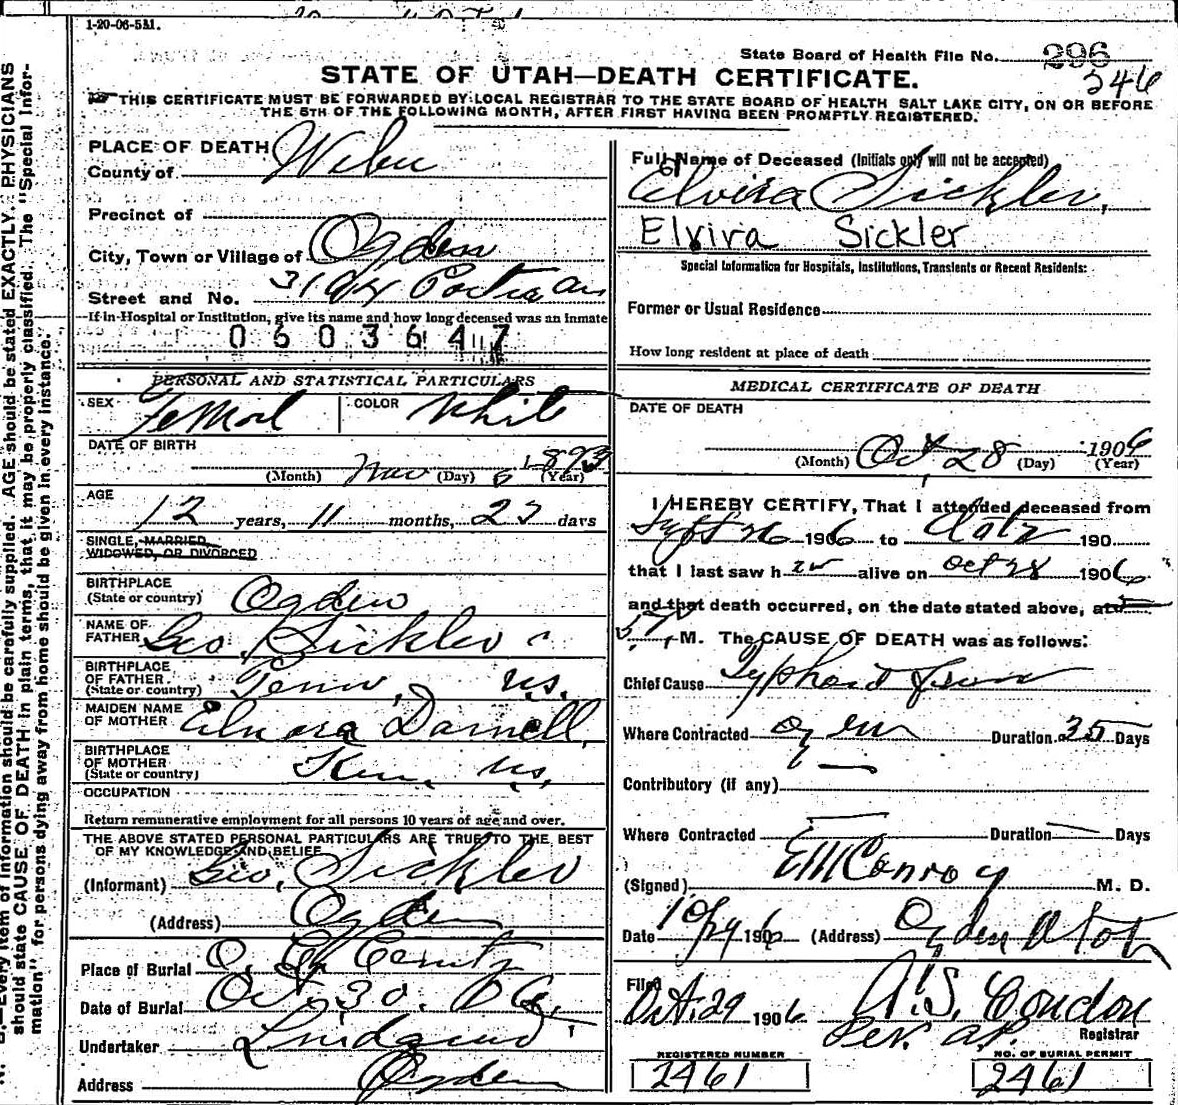 1-20-06-5M.
State Board of Health File No. 296
246
STATE OF UTAH—DEATH CERTIFICATE.
THIS CERTIFICATE MUST BE FORWARDED BY LOCAL REGISTRAR TO THE STATE BOARD OF HEALTH SALT LAKE CITY, ON OR BEFORE
THE 5TH OF THE FOLLOWING MONTH, AFTER FIRST HAVING BEEN PROMPTLY REGISTERED.
PLACE OF DEATH
County of Weber
Precinct of
City, Town or Village of Ogden
Street and No.
If in Hospital or Institution, give its name and how long deceased was an inmate
0603647
PERSONAL AND STATISTICAL PARTICULARS
SEX Femal COLOR White
DATE OF BIRTH
(Month) Nov (Day) 6 (Year) 1893
AGE
12 years, 11 months, days
SINGLE, MARRIED,
WIDOWED, OR DIVORCED
BIRTHPLACE
(State or country) Ogden
NAME OF
FATHER Geo. Sickler
BIRTHPLACE
OF FATHER
(State or country) Tenn. U.S.
MAIDEN NAME
OF MOTHER Elnora Darnell
BIRTHPLACE
OF MOTHER
(State or country) Ken. U.S.
OCCUPATION
Return remunerative employment for all persons 10 years of age and over.
THE ABOVE STATED PERSONAL PARTICULARS ARE TRUE TO THE BEST
OF MY KNOWLEDGE AND BELIEF
(Informant) Geo. Sickler
(Address) Ogden
Place of Burial O. City Cemty
Date of Burial Oct. 30. 06.
Undertaker Lindquist
Address Ogden
Full Name of Deceased (Initials only will not be accepted)
Elvira Sickler,
Elvira Sickler
Special Information for Hospitals, Institutions, Transients or Recent Residents:
Former or Usual Residence
How long resident at place of death
MEDICAL CERTIFICATE OF DEATH
DATE OF DEATH
(Month) Oct. 28 (Day) 1906 (Year)
I HEREBY CERTIFY, That I attended deceased from
Sept 26 1906 to date 190
that I last saw her alive on Oct 28 1906
and that death occurred, on the date stated above, at
M. The CAUSE OF DEATH was as follows:
Chief Cause Typhoid fever
Where Contracted Ogden Duration 35 Days
Contributory (if any) —
Where Contracted — Duration — Days
(Signed) E M Conroy M. D.
Date 10/29 1906 (Address) Ogden Utah
Filed
Oct. 29 1906 A. S. Condon
Per. A.P. Registrar
REGISTERED NUMBER
2461
NO. OF BURIAL PERMIT
2461
B.—Every item of information should be carefully supplied. AGE should be stated EXACTLY. PHYSICIANS
should state CAUSE OF DEATH in plain terms, that it may be properly classified. The "Special Infor-
mation" for persons dying away from home should be given in every instance.